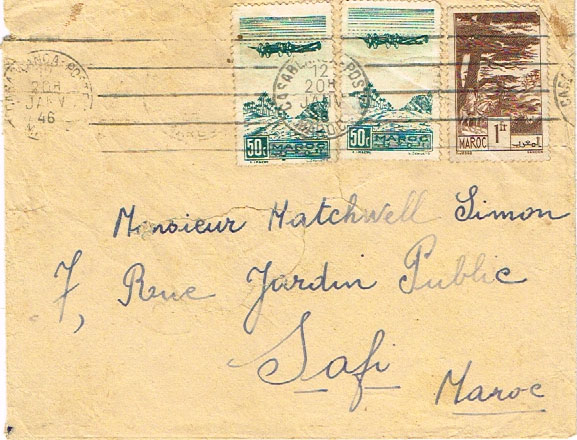 CASABLANCA-POSTES
12
20H
JANV
46
CASABLANCA-POSTES
12
20H
JANV
46
MAROC
50c
MAROC
50c
MAROC
1fr
MAROC
Monsieur Hatchwell Simon
7, Rue Jardin Public
Safi
Maroc